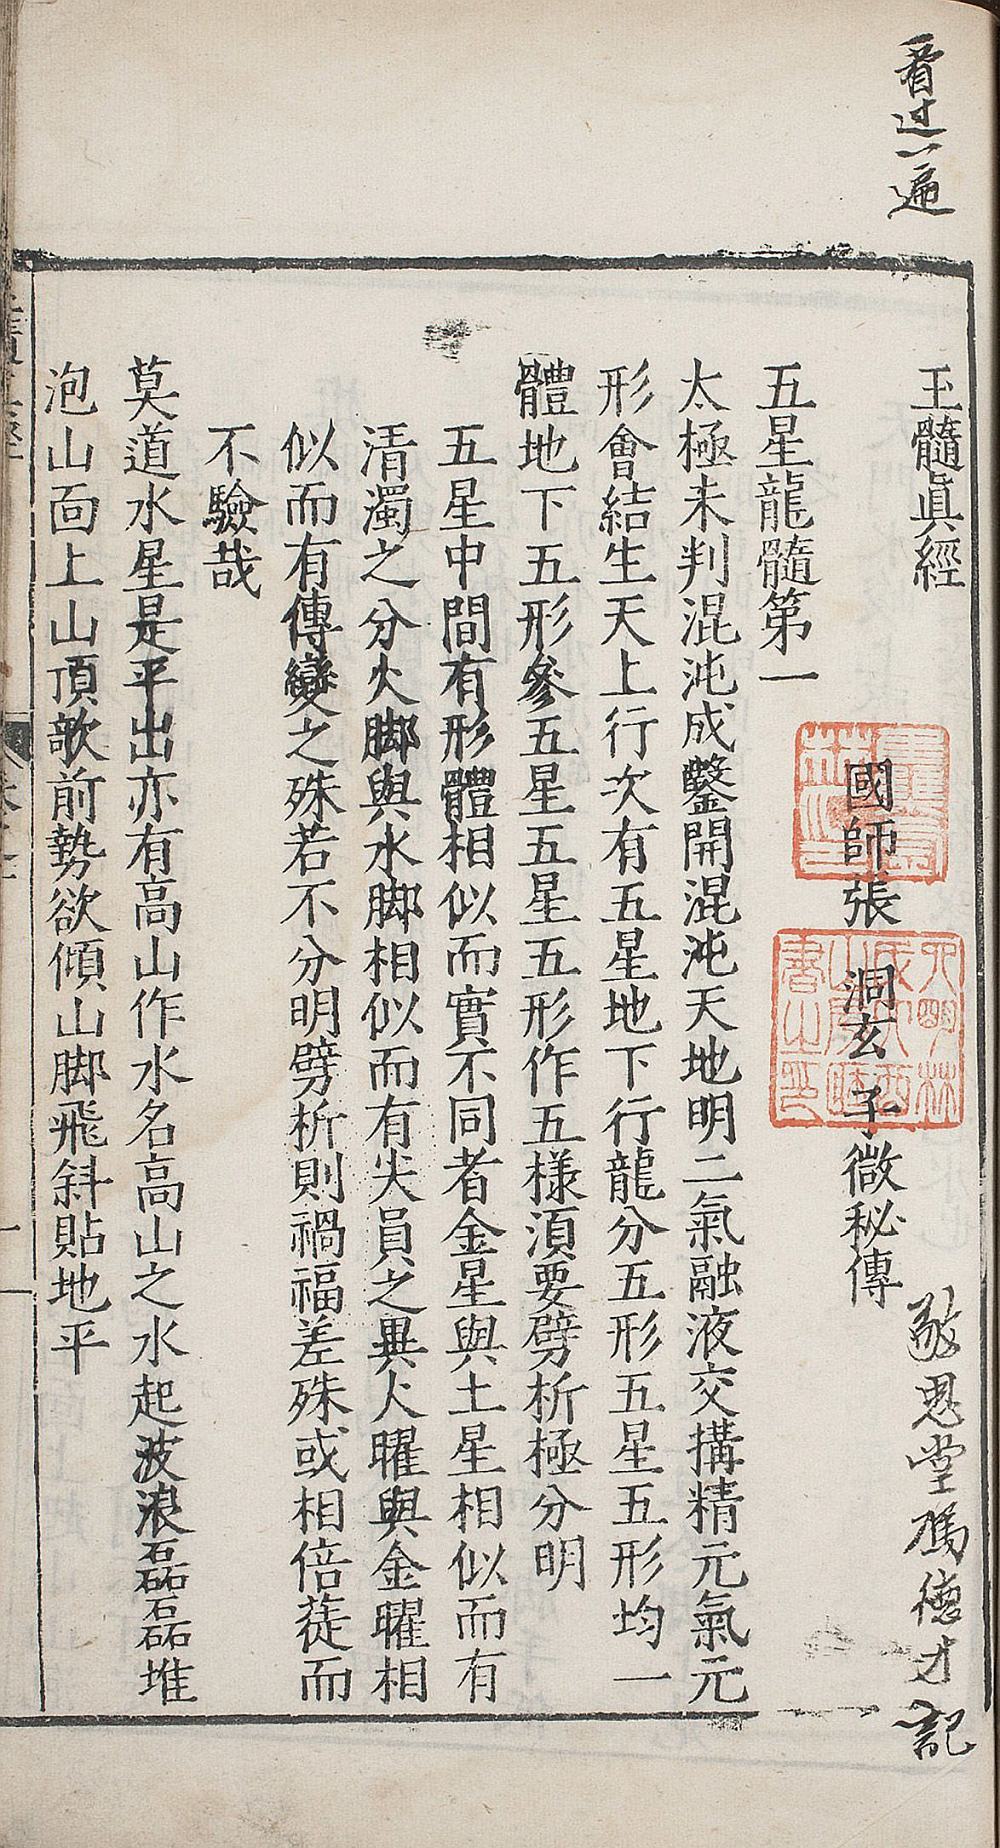 看过一遍
玉髓眞經
國師張 洞玄 子微秘傳
敬思堂馮德才記
五星龍髓第一
太極未判混沌成鑿開混沌天地明二氣融液交搆精元氣元
形會結生天上行次有五星地下行龍分五形五星五形均一
體地下五形參五星五星五形作五樣湏要劈析極分明
五星中間有形體相似而實不同者金星與土星相似而有
清濁之分火脚與水脚相似而有尖員之異火曜與金曜相
似而有傳變之殊若不分明劈析則禍福差殊或相倍蓰而
不驗哉
莫道水星是平出亦有高山作水名高山之水起波浪磊磊堆
泡山面上山頂歌前勢欲傾山脚飛斜貼地平